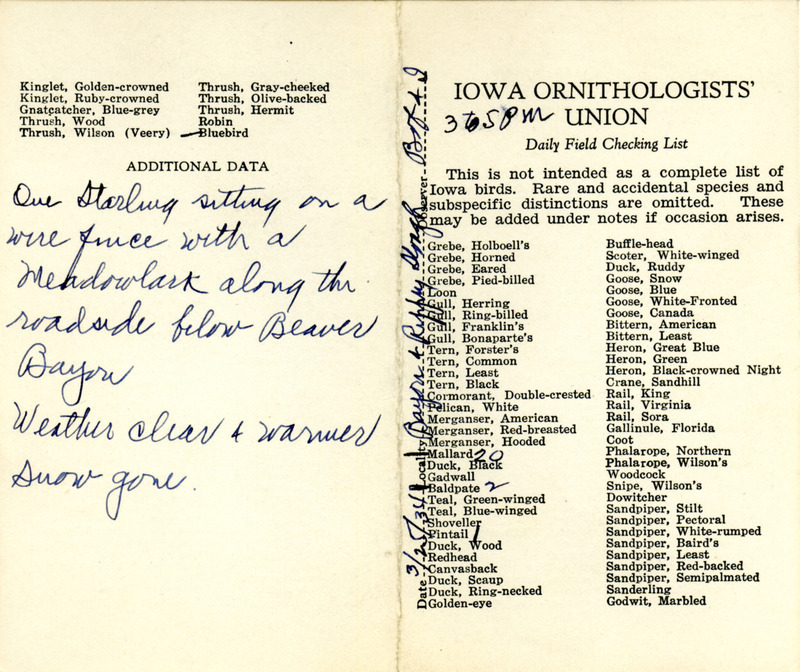 Kinglet, Golden-crowned
Kinglet, Ruby-crowned
Gnatcatcher, Blue-grey
Thrush, Wood
Thrush, Wilson (Veery)
Thrush, Gray-cheeked
Thrush, Olive-backed
Thrush, Hermit
Robin
Bluebird
ADDITIONAL DATA
One Starling sitting on a
wire fence with a
Meadowlark along the
roadside below Beaver
Bayou
Weather clear & warmer
snow gone.
Date 3/25/34 Locality Bayou & Rippey Observer
IOWA ORNITHOLOGISTS'
UNION
3 to 5 PM
Daily Field Checking List
This is not intended as a complete list of
Iowa birds. Rare and accidental species and
subspecific distinctions are omitted. These
may be added under notes if occasion arises.
Grebe, Holboell's
Grebe, Horned
Grebe, Eared
Grebe, Pied-billed
Loon
Gull, Herring
Gull, Ring-billed
Gull, Franklin's
Gull, Bonaparte's
Tern, Forster's
Tern, Common
Tern, Least
Tern, Black
Cormorant, Double-crested
Pelican, White
Merganser, American
Merganser, Red-breasted
Merganser, Hooded
Mallard 20
Duck, Black
Gadwall
Baldpate 2
Teal, Green-winged
Teal, Blue-winged
Shoveller
Pintail 1
Duck, Wood
Redhead
Canvasback
Duck, Scaup
Duck, Ring-necked
Golden-eye
Buffle-head
Scoter, White-winged
Duck, Ruddy
Goose, Snow
Goose, Blue
Goose, White-Fronted
Goose, Canada
Bittern, American
Bittern, Least
Heron, Great Blue
Heron, Green
Heron, Black-crowned Night
Crane, Sandhill
Rail, King
Rail, Virginia
Rail, Sora
Gallinule, Florida
Coot
Phalarope, Northern
Phalarope, Wilson's
Woodcock
Snipe, Wilson's
Dowitcher
Sandpiper, Stilt
Sandpiper, Pectoral
Sandpiper, White-rumped
Sandpiper, Baird's
Sandpiper, Least
Sandpiper, Red-backed
Sandpiper, Semipalmated
Sanderling
Godwit, Marbled